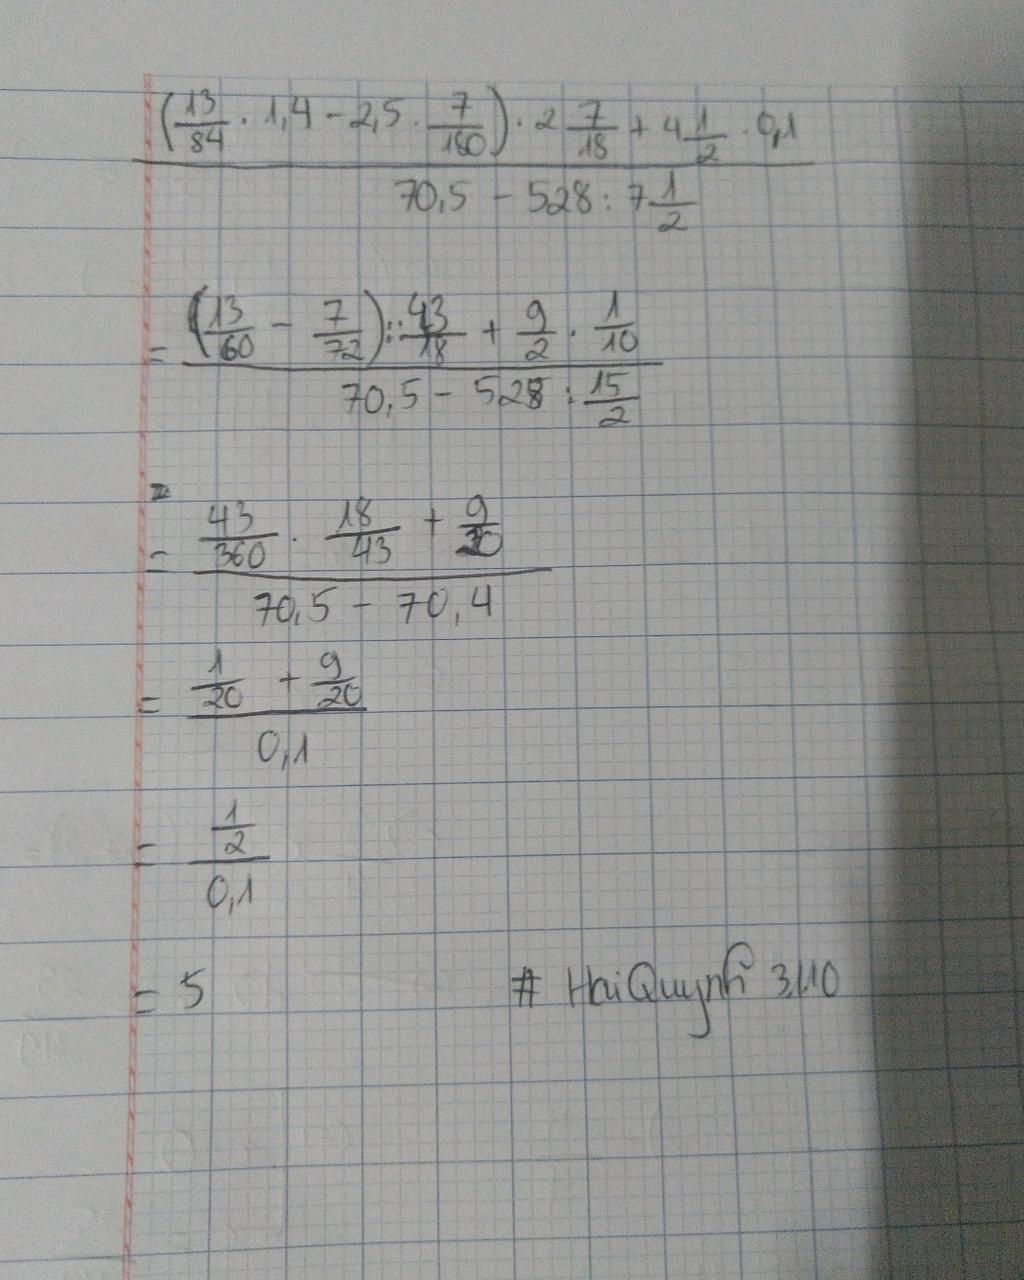 (13/84 . 1,4 - 2,5 . 7/180) . 2 7/18 + 4 1/2 . 0,1
70,5 - 528 : 7 1/2
= (13/60 - 7/72) : 43/18 + 9/2 . 1/10
70,5 - 528 : 15/2
= 43/360 . 18/43 + 9/20
70,5 - 70,4
= 1/20 + 9/20
0,1
= 1/2
0,1
= 5 # HaiQuynh 3/10